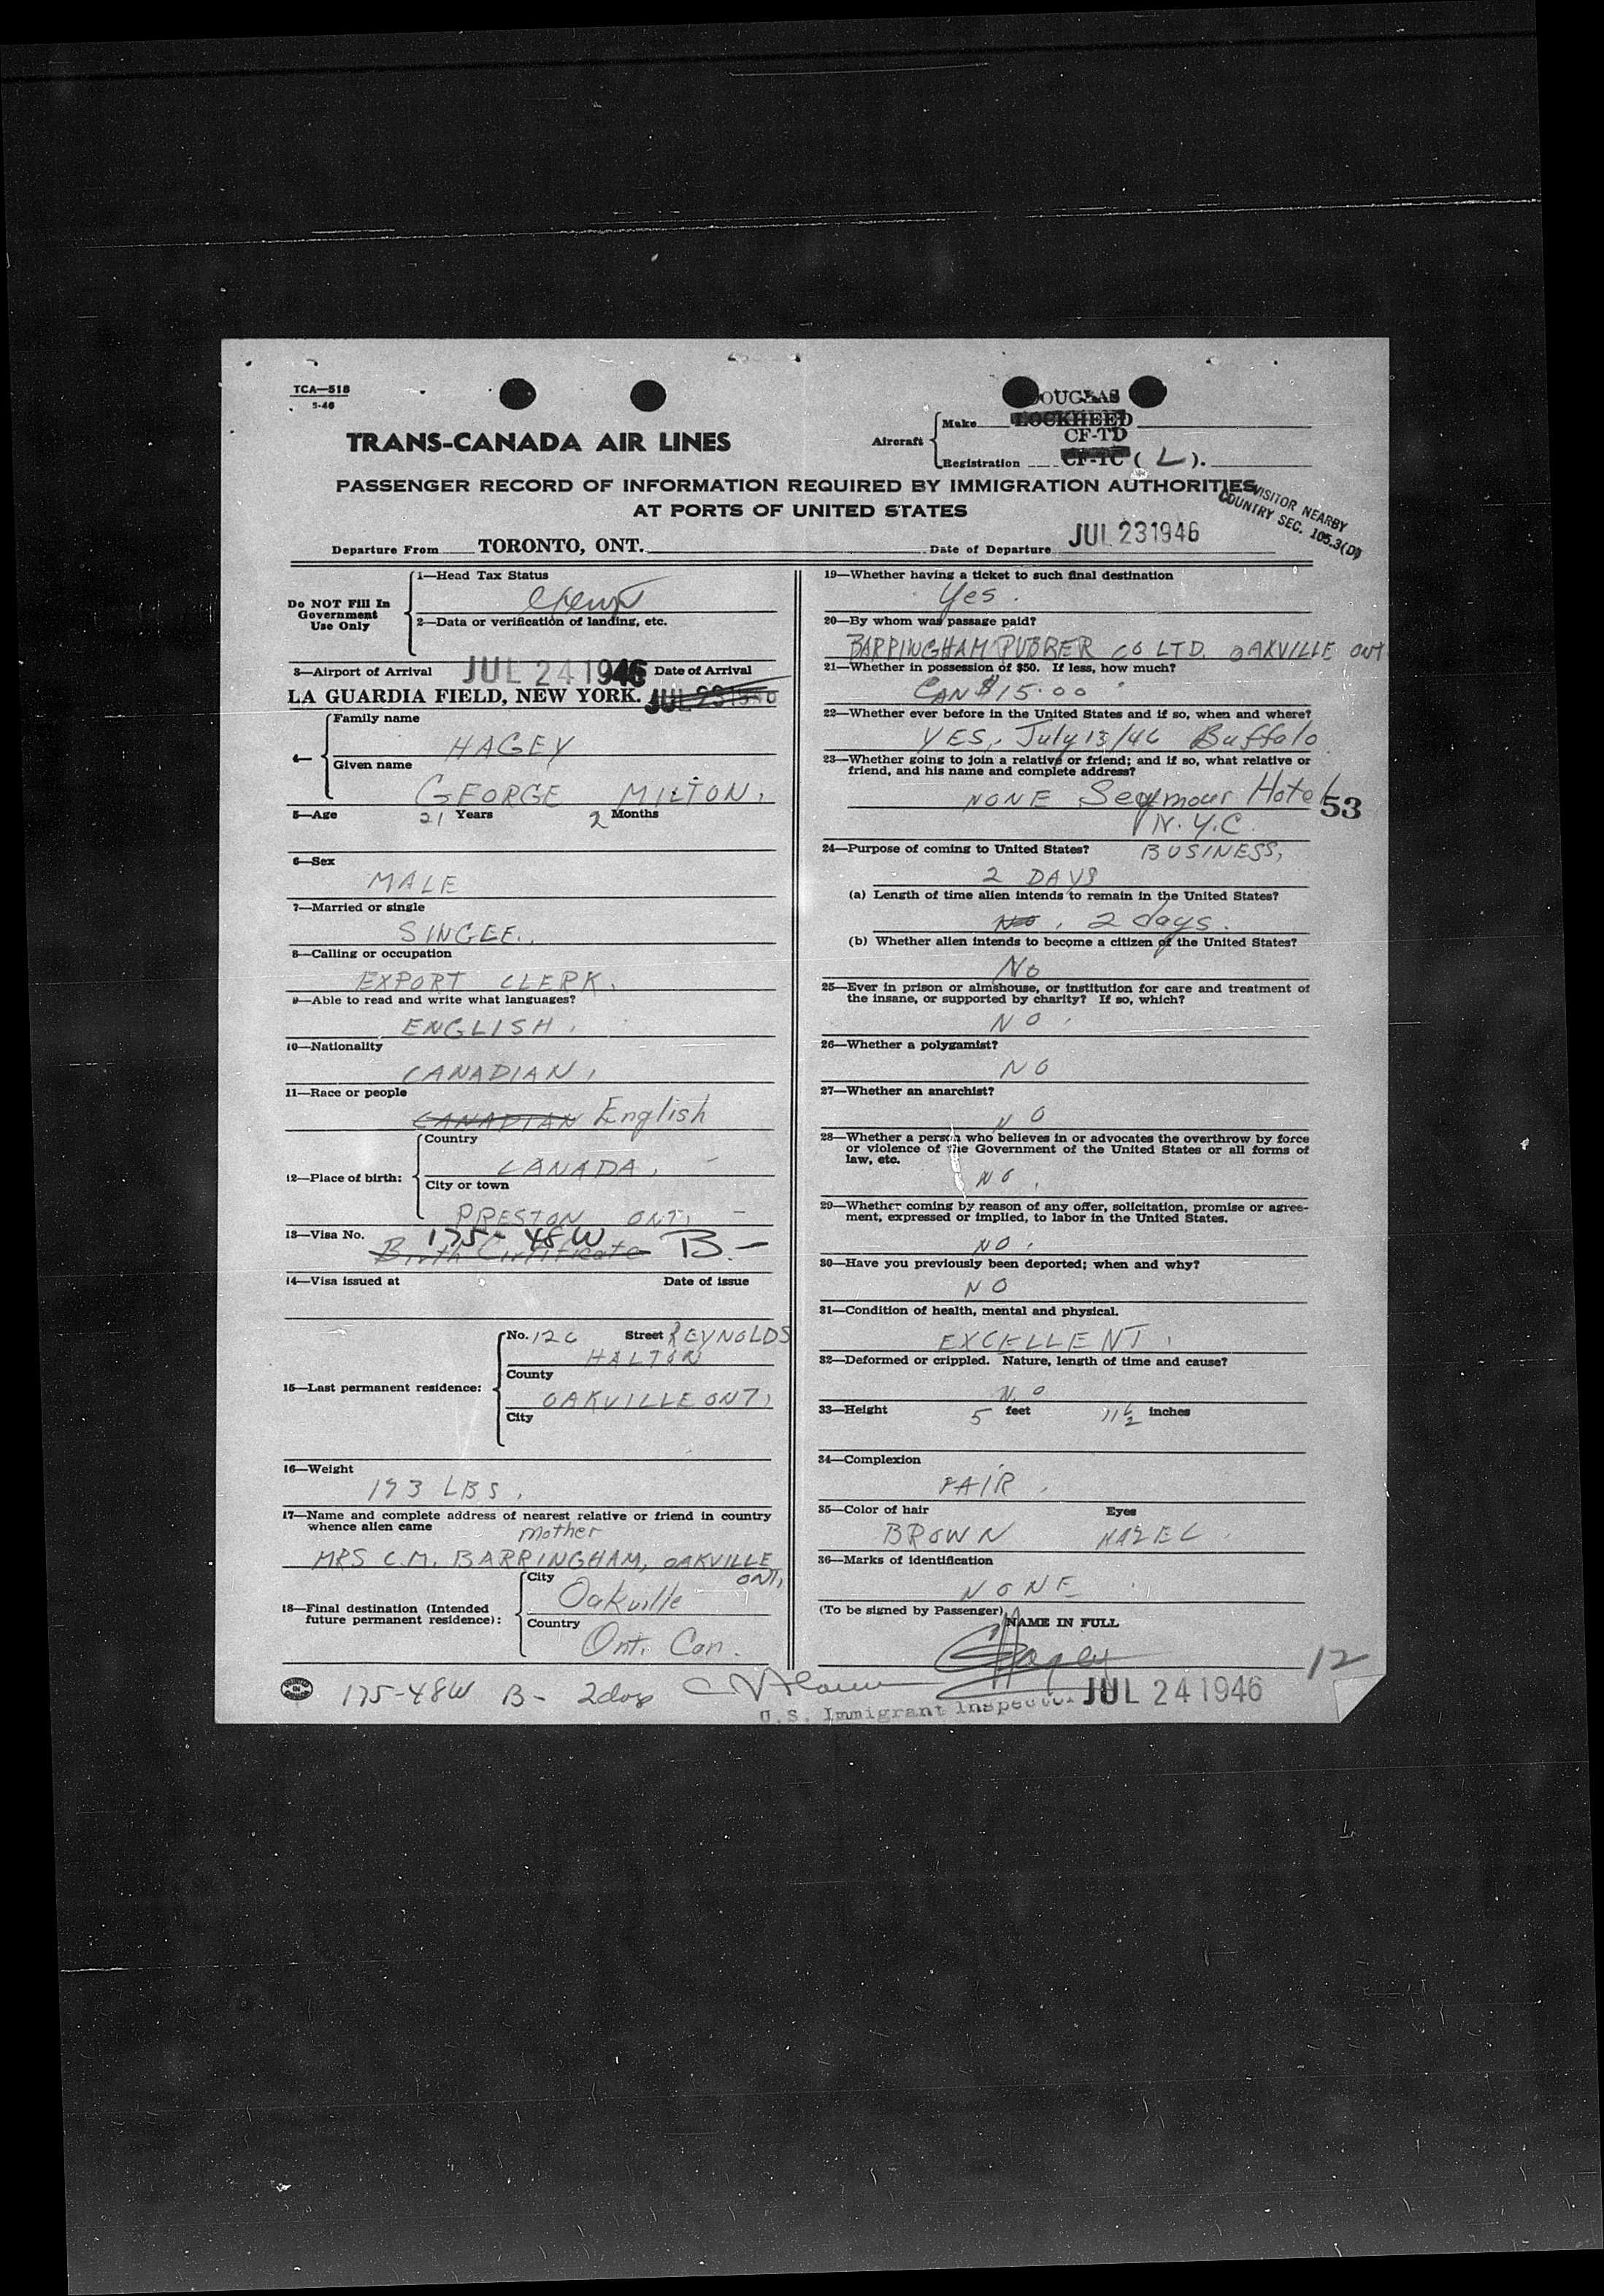 TCA—518
5-46
TRANS-CANADA AIR LINES
Aircraft
Make DOUGLAS
LOCKHEED
CF-TD
Registration CF-TC ( L ).
PASSENGER RECORD OF INFORMATION REQUIRED BY IMMIGRATION AUTHORITIES
AT PORTS OF UNITED STATES
VISITOR NEARBY
COUNTRY SEC. 105.3(D)
Departure From TORONTO, ONT. Date of Departure JUL 23 1946
Do NOT Fill In
Government
Use Only
1—Head Tax Status
2—Data or verification of landing, etc.
3—Airport of Arrival JUL 24 1946 Date of Arrival
LA GUARDIA FIELD, NEW YORK. JUL 23 1946
4—
Family name
HAGEY
Given name
GEORGE MILTON.
5—Age 21 Years 2 Months
6—Sex
MALE
7—Married or single
SINGLE.
8—Calling or occupation
EXPORT CLERK.
9—Able to read and write what languages?
ENGLISH.
10—Nationality
CANADIAN,
11—Race or people
CANADIAN English
12—Place of birth:
Country
CANADA.
City or town
PRESTON ONT,
13—Visa No. 175-48W B-
Birth Certificate
14—Visa issued at Date of issue
15—Last permanent residence:
No. 126 Street REYNOLDS
HALTON
County
OAKVILLE ONT,
City
16—Weight
193 LBS.
17—Name and complete address of nearest relative or friend in country
whence alien came
mother
MRS C.M. BARRINGHAM, OAKVILLE
ONT,
18—Final destination (Intended
future permanent residence):
City
Oakville
Country
Ont. Can.
19—Whether having a ticket to such final destination
Yes.
20—By whom was passage paid?
BARRINGHAM RUBBER CO LTD. OAKVILLE ONT
21—Whether in possession of $50. If less, how much?
CAN $15.00
22—Whether ever before in the United States and if so, when and where?
YES, July 13/46 Buffalo
23—Whether going to join a relative or friend; and if so, what relative or
friend, and his name and complete address?
NONE Seymour Hotel
53
N.Y.C.
24—Purpose of coming to United States? BUSINESS,
2 DAYS
(a) Length of time alien intends to remain in the United States?
No. 2 days.
(b) Whether alien intends to become a citizen of the United States?
No
25—Ever in prison or almshouse, or institution for care and treatment of
the insane, or supported by charity? If so, which?
NO.
26—Whether a polygamist?
NO
27—Whether an anarchist?
NO
28—Whether a person who believes in or advocates the overthrow by force
or violence of the Government of the United States or all forms of
law, etc.
NO.
29—Whether coming by reason of any offer, solicitation, promise or agree-
ment, expressed or implied, to labor in the United States.
NO.
30—Have you previously been deported; when and why?
NO
31—Condition of health, mental and physical.
EXCELLENT.
32—Deformed or crippled. Nature, length of time and cause?
No
33—Height 5 feet 11½ inches
34—Complexion
FAIR.
35—Color of hair Eyes
BROWN HAZEL.
36—Marks of identification
NONE
(To be signed by Passenger) NAME IN FULL
GHagey
12
PRINTED
IN
CANADA
175-48W B- 2days
U.S. Immigrant Inspector JUL 24 1946